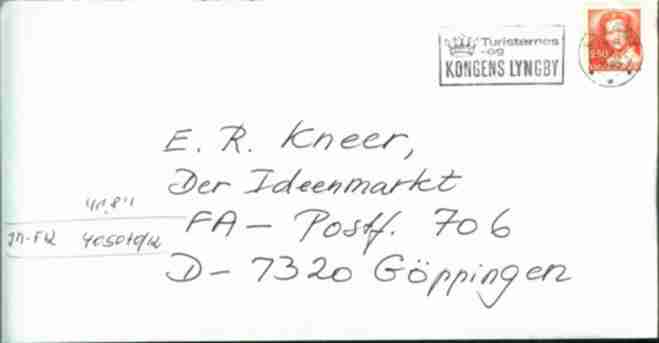 Turisternes
-og
KONGENS LYNGBY
E. R. Kneer,
Der Ideenmarkt
FA - Postf. 706
D - 7320 Göppingen